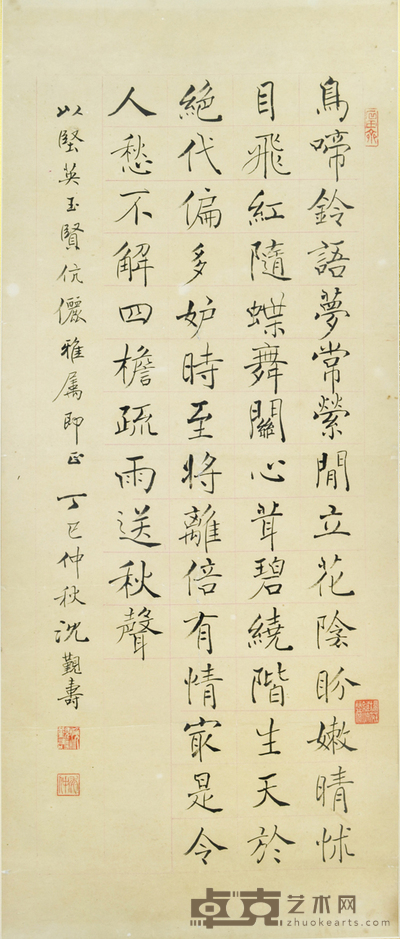 鳥啼鈴語夢常縈閒立花陰盼嫩晴怵
目飛紅隨蝶舞關心茸碧繞階生天於
絕代偏多妒時至將離倍有情寂是令
人愁不解四檐疏雨送秋聲
以堅英玉賢伉儷雅屬即正 丁巳仲秋沈覲壽
卓克艺术网
www.zhuokearts.com